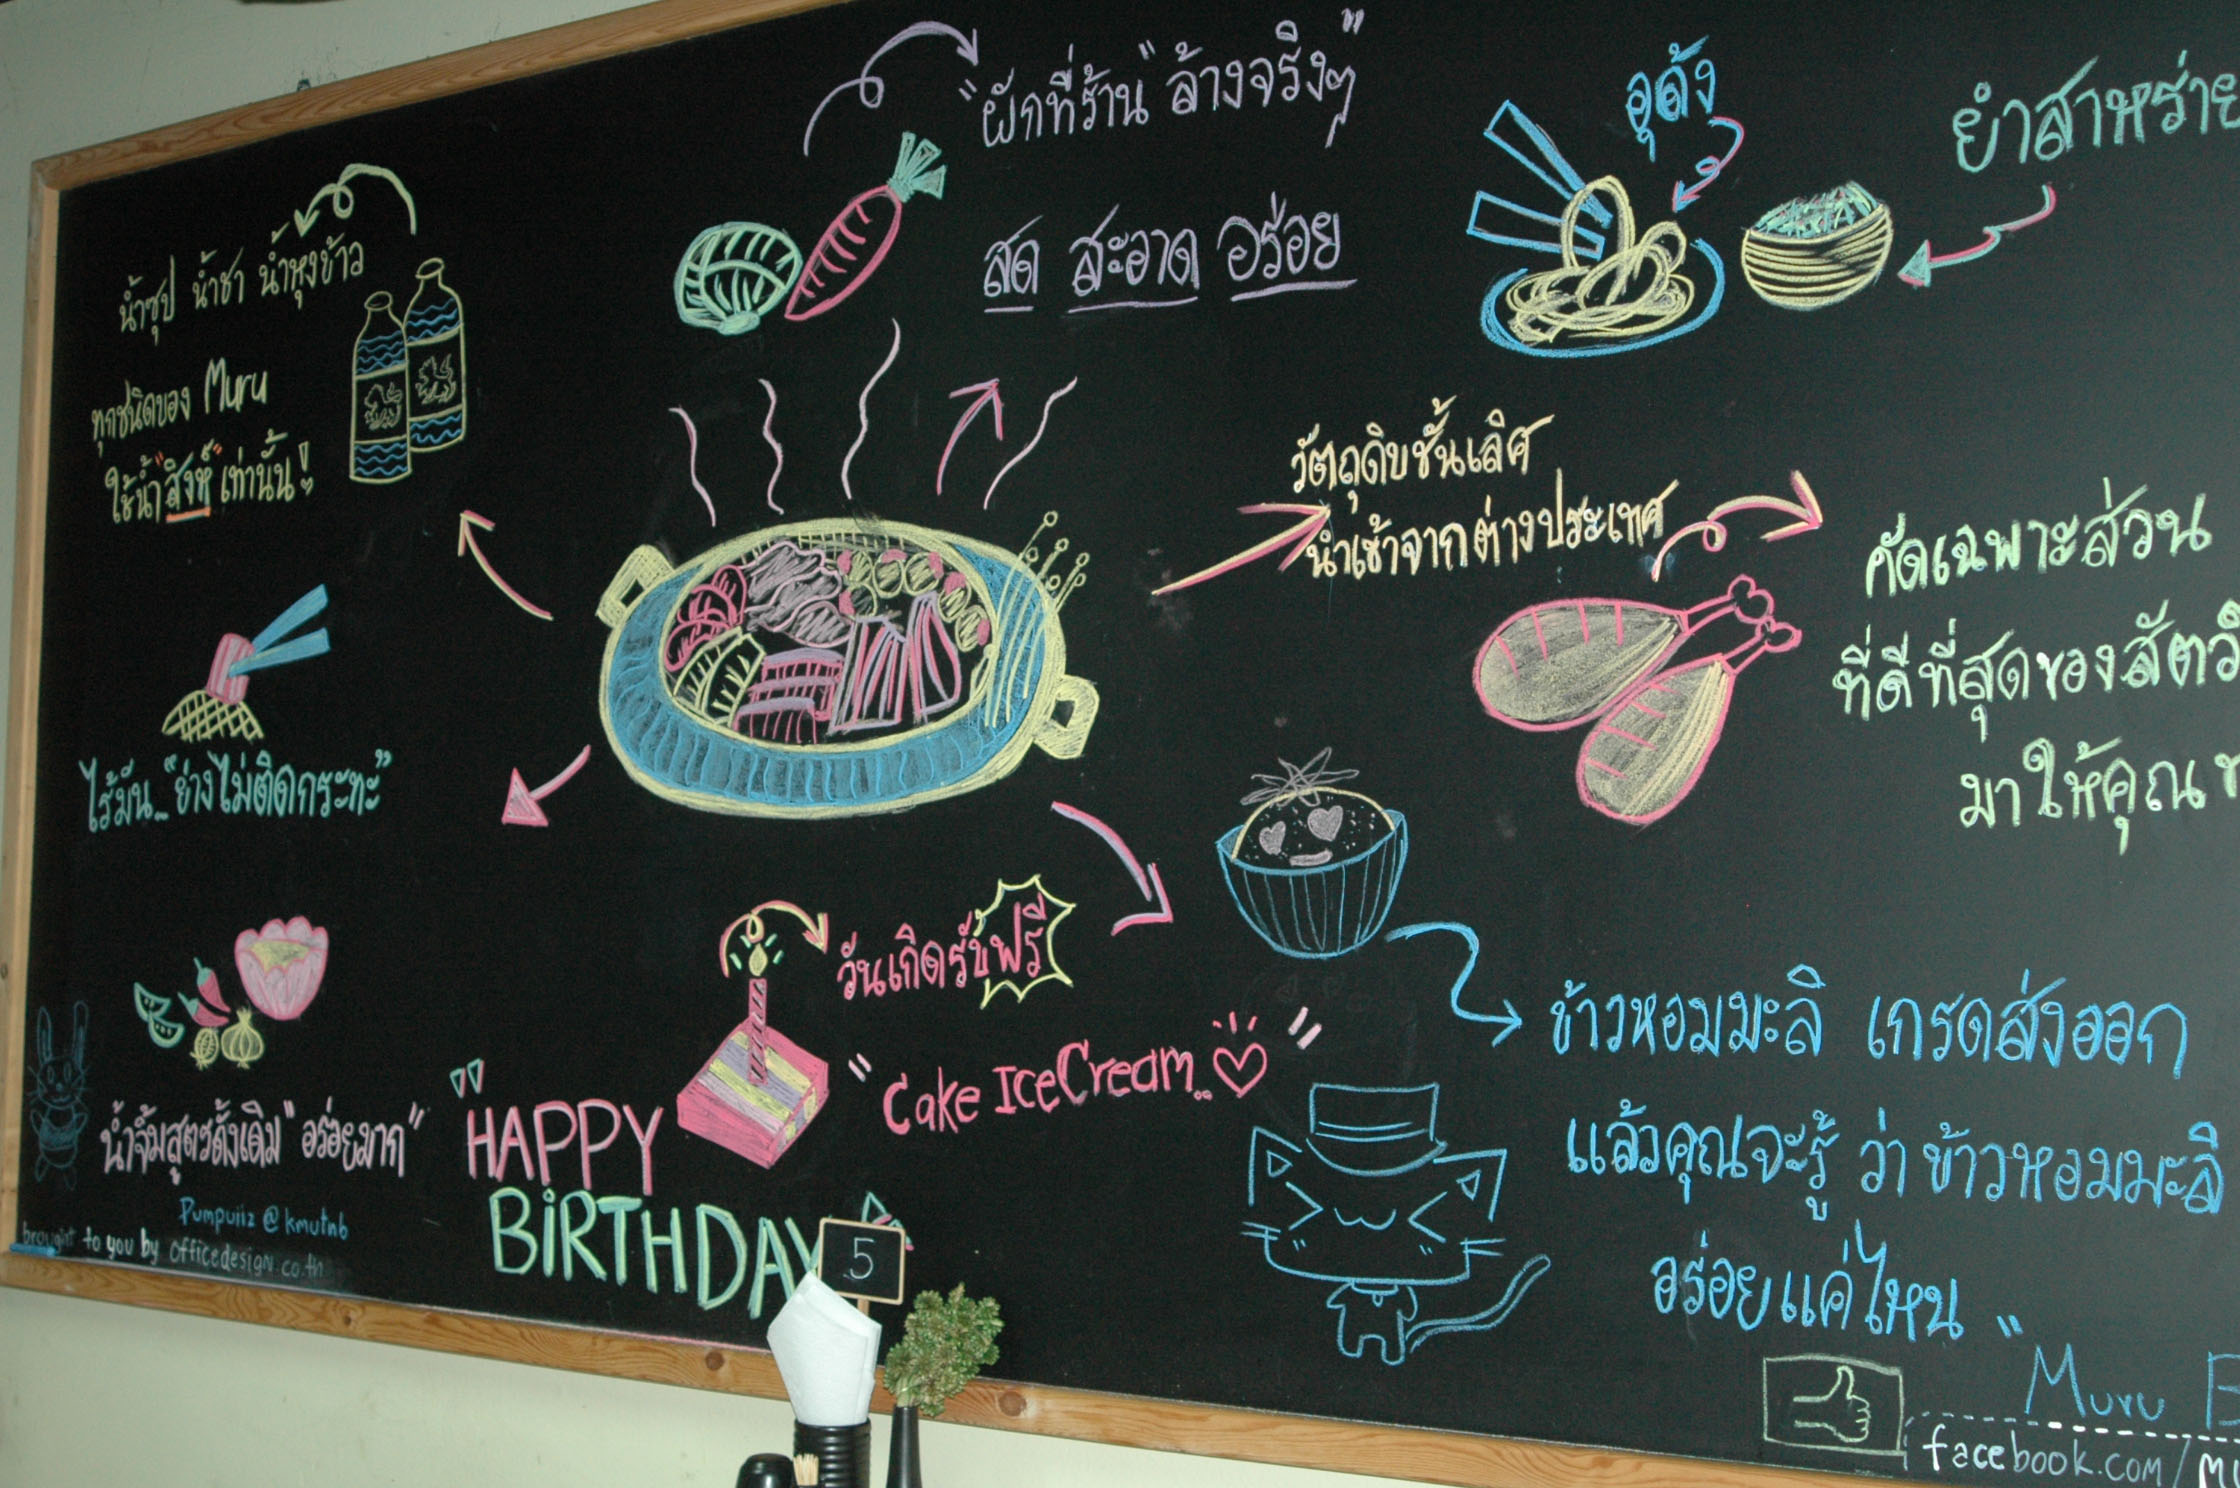 "ผักที่ร้าน "ล้างจริงๆ"
สด สะอาด อร่อย
อุด้ง
ยำสาหร่าย
น้ำซุป น้ำชา น้ำหุงข้าว
ทุกชนิดของ Muru
ใช้น้ำ"สิงห์"เท่านั้น!
วัตถุดิบชั้นเลิศ
นำเข้าจากต่างประเทศ
คัดเฉพาะส่วน
ที่ดีที่สุดของสัตว์
มาให้คุณ
ไร้มัน.. "ย่างไม่ติดกระทะ"
น้ำจิ้มสูตรดั้งเดิม "อร่อยมาก"
วันเกิดรับฟรี
"Cake IceCream.. "
"HAPPY
BiRTHDAY
5
ข้าวหอมมะลิ เกรดส่งออก
แล้วคุณจะรู้ ว่า ข้าวหอมมะลิ
อร่อยแค่ไหน "
Pumpuiiz @ kmutnb
brought to you by officedesign.co.th
Muru
facebook.com/mu